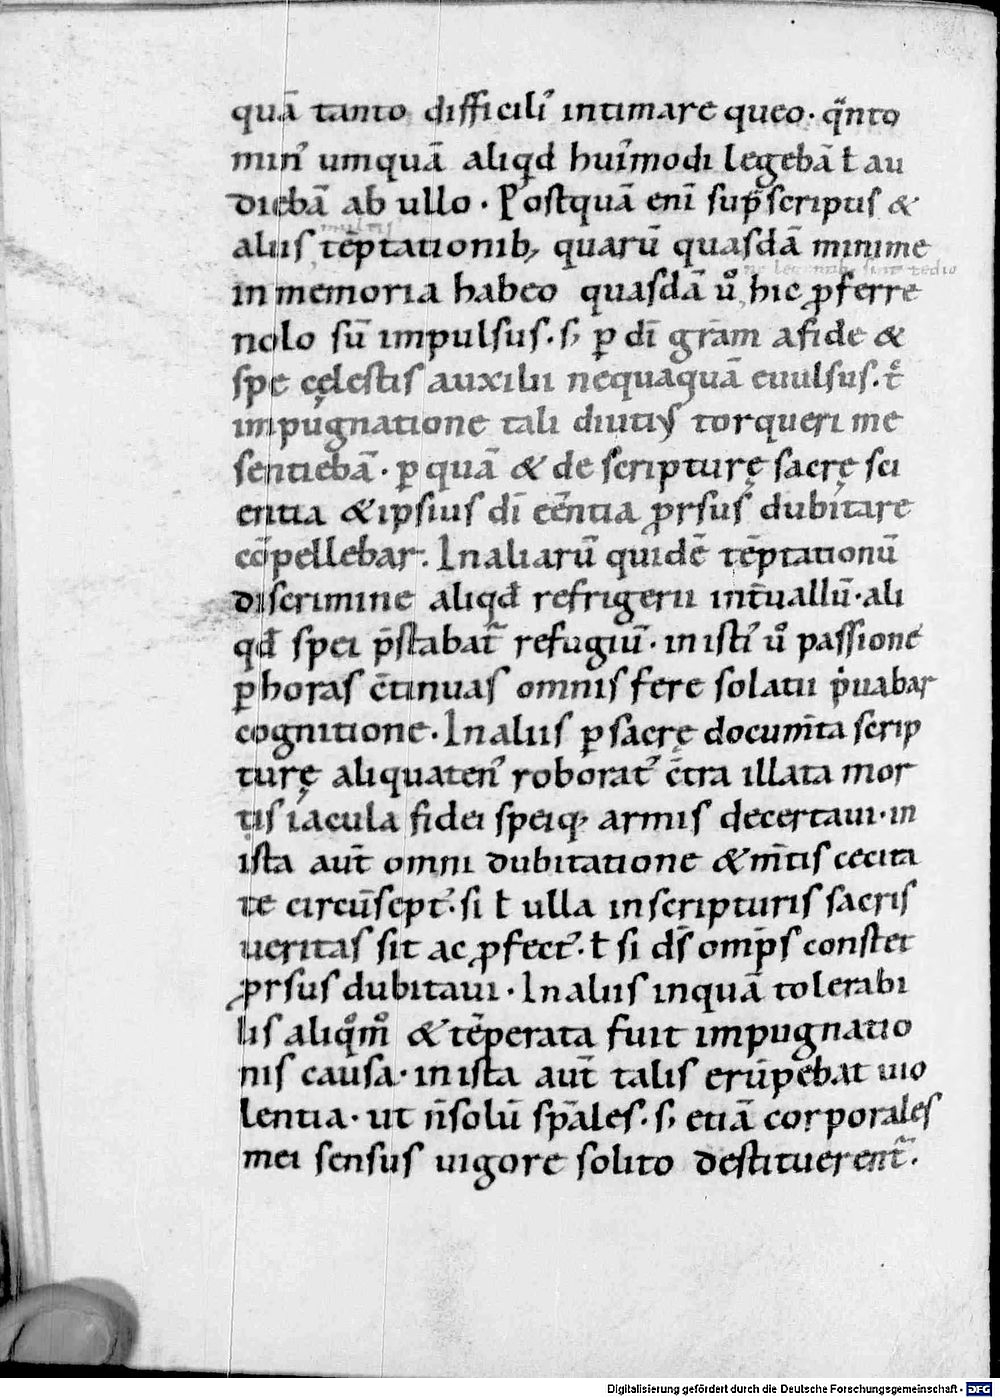 quā tanto difficili᾽ intimare queo· q̄nto
min᾽ umquā aliqd hui᾽modi legebā ł au
diebā ab ullo· Postquā eni᾽ sup̄scriptis &
multis
aliis tēptationib; quarū quasdā minime
ne legentib; sint tedio
in memoria habeo quasdā ů hic ꝓferre
nolo sū impulsus· s; ꝑ dī grām a fide &
spe cęlestis auxilii nequaquā euulsus· t̄
impugnatione tali diutiꝰ torqueri me
sentiebā· ꝑ quā & de scripturę sacrę sci
entia & ipsius dī eēntia ꝓrsus dubitare
cōpellebar· In aliarū quidē tēptationū
discrimine aliqđ refrigerii int̄uallū· ali
qđ spei p̄stabat᾽ refugiū· in isti᾽ ů passione
ꝑ horas c̄tinuas omnis fere solatii p̍uabar
cognitione· In aliis ꝑ sacrę documt̄a scrip
turę aliquaten᾽ roborat᾽ c̄tra illata mor
tis iacula fidei speiq; armis decertaui· in
ista aut̄ omni dubitatione & mt̄is cecita
te circūsept᾽· si ł ulla in scripturis sacris
ueritas sit ac ꝓfect᾽· ł si ds̄ omp̄s constet
ꝓrsus dubitaui· In aliis inquā tolerabi
lis aliqͦmͦ & tēperata fuit impugnatio
nis causa· in ista aut̄ talis erūpebat uio
lentia· ut n̄ solū sp̄ales· s; etiā corporales
mei sensus uigore solito destituerent᾽·
Digitalisierung gefördert durch die Deutsche Forschungsgemeinschaft - DFG